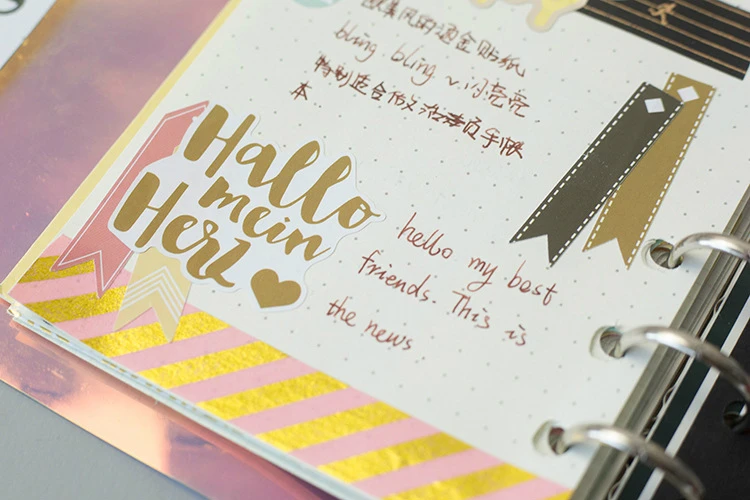 风的烫金贴纸
bling bling 闪亮亮
特制适合 活页手帐
本
Hallo
mein
Herz
hello my best
friends. This is
the news.